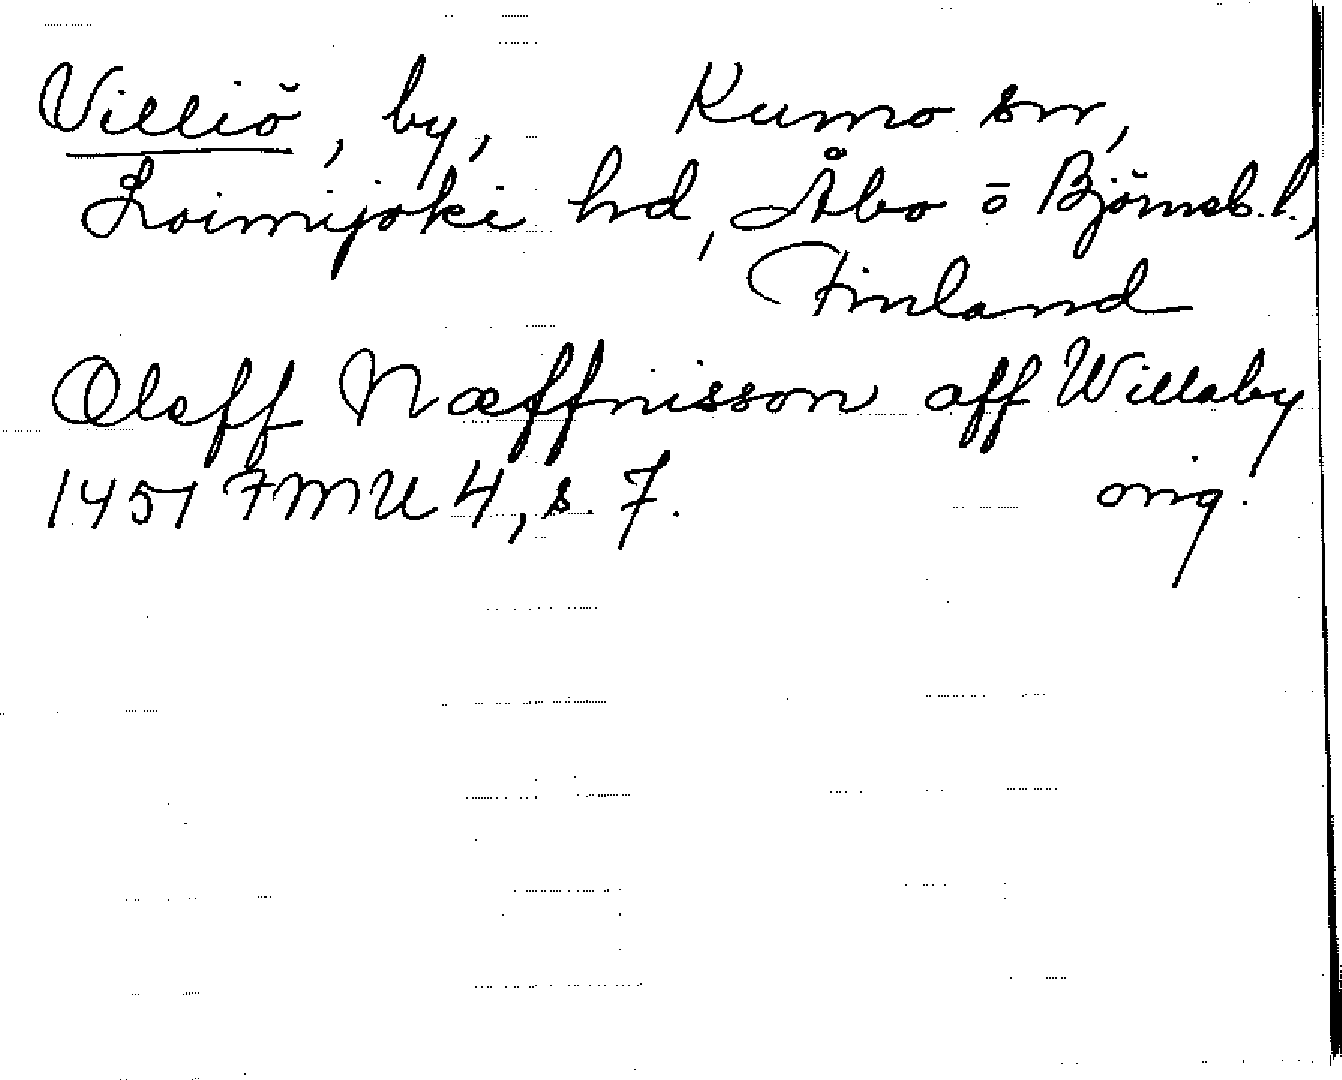 Villiö, by, Kumo sn,
Loimijoki hd, Åbo o Björneb. l.,
Finland
Oleff Næffnisson aff Willaby
1457 FMU 4, s. 7. orig.